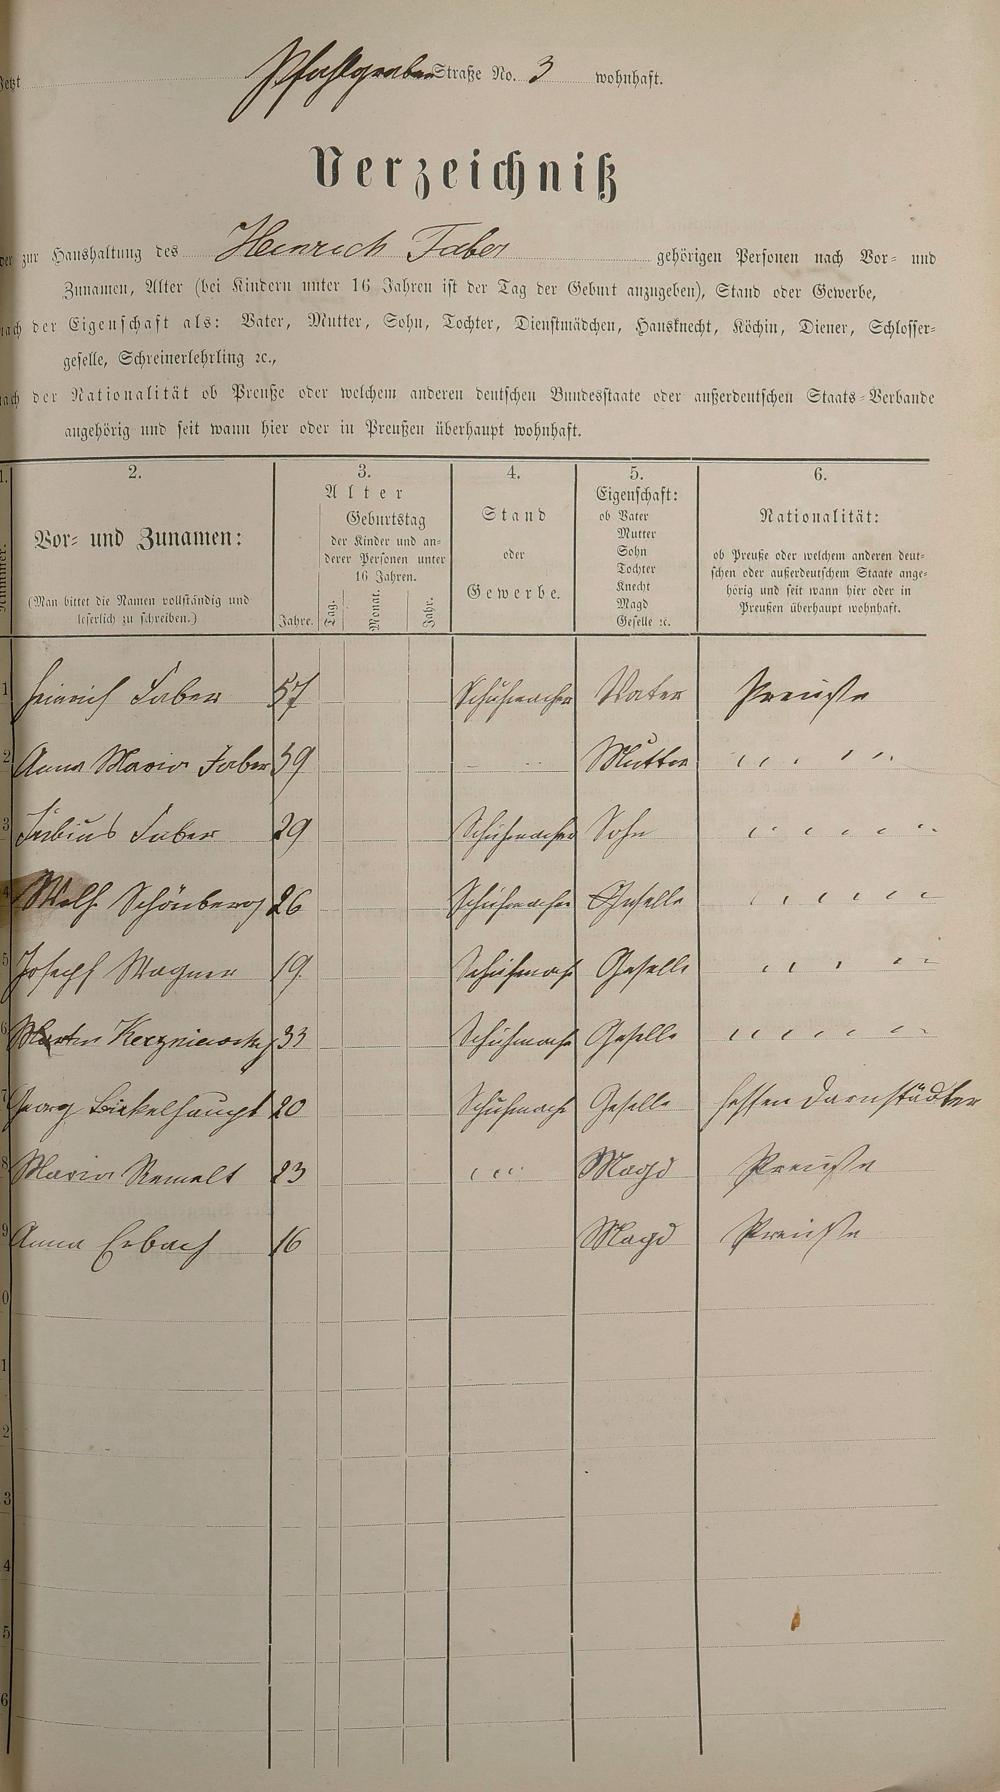 Jetzt Pfahlgraben Straße No. 3 wohnhaft.
Verzeichniß
der zur Haushaltung des Heinrich Faber gehörigen Personen nach Vor- und
Zunamen, Alter (bei Kindern unter 16 Jahren ist der Tag der Geburt anzugeben), Stand oder Gewerbe,
nach der Eigenschaft als: Vater, Mutter, Sohn, Tochter, Dienstmädchen, Hausknecht, Köchin, Diener, Schlosser-
geselle, Schreinerlehrling ꝛc.,
nach der Nationalität ob Preuße oder welchem anderen deutschen Bundesstaate oder außerdeutschen Staats-Verbande
angehörig und seit wann hier oder in Preußen überhaupt wohnhaft.
1. 2. 3. 4. 5. 6.
Nummer.
Vor- und Zunamen:
(Man bittet die Namen vollständig und
leserlich zu schreiben.)
Alter
Jahre.
Geburtstag
der Kinder und an-
derer Personen unter
16 Jahren.
Tag. Monat. Jahr.
Stand
oder
Gewerbe.
Eigenschaft:
ob Vater
Mutter
Sohn
Tochter
Knecht
Magd
Geselle ꝛc.
Nationalität:
ob Preuße oder welchem anderen deut-
schen oder außerdeutschem Staate ange-
hörig und seit wann hier oder in
Preußen überhaupt wohnhaft.
1 Heinrich Faber 57 Schuhmacher Vater Preuße
2 Anna Maria Faber 59 Mutter " " " " "
3 Julius Faber 29 Schuhmacher Sohn " " " " "
4 Schönberg 26 Schuhmacher Geselle " " " " "
5 Joseph Wagner 19 Schuhmach Geselle " " " " "
6 Martin 33 Schuhmach Geselle " " " " "
7 Georg Bickelhaupt 20 Schuhmach Geselle Hessen Darmstädter
8 Maria Remelt 23 " " " Magd Preuße
9 Anna Erbach 16 Magd Preuße
0
1
2
3
4
5
6